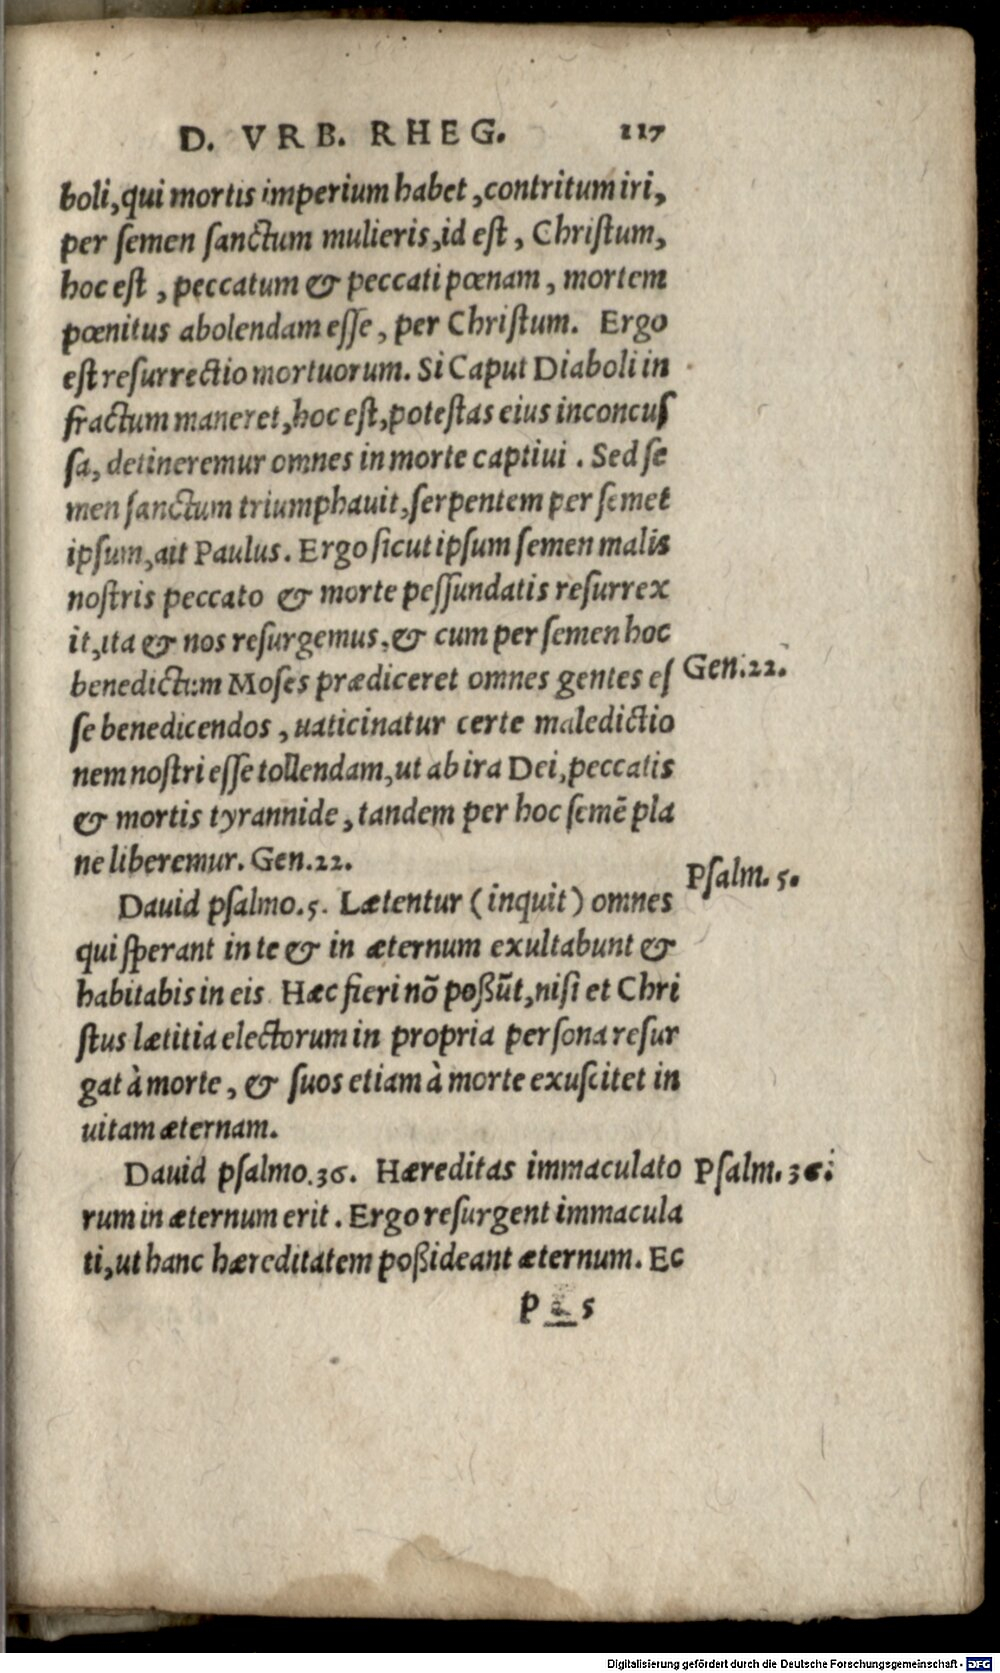 D. VRB. RHEG. 117
boli, qui mortis imperium habet, contritum iri,
per semen sanctum mulieris, id est, Christum,
hoc est, peccatum & peccati pœnam, mortem
pœnitus abolendam esse, per Christum. Ergo
est resurrectio mortuorum. Si Caput Diaboli in
fractum maneret, hoc est, potestas eius inconcus
sa, detineremur omnes in morte captiui. Sed se
men sanctum triumphauit, serpentem per semet
ipsum, ait Paulus. Ergo sicut ipsum semen malis
nostris peccato & morte pessundatis resurrex
it, ita & nos resurgemus, & cum per semen hoc
benedictum Moses prædiceret omnes gentes es
Gen. 22.
se benedicendos, uaticinatur certe maledictio
nem nostri esse tollendam, ut ab ira Dei, peccatis
& mortis tyrannide, tandem per hoc semē pla
ne liberemur. Gen. 22.
Psalm. 5.
Dauid psalmo. 5. Lætentur (inquit) omnes
qui sperant in te & in æternum exultabunt &
habitabis in eis. Hæc fieri nō poßūt, nisi et Chri
stus lætitia electorum in propria persona resur
gat à morte, & suos etiam à morte exuscitet in
uitam æternam.
Dauid psalmo. 36. Hæreditas immaculato
Psalm. 36.
rum in æternum erit. Ergo resurgent immacula
ti, ut hanc hæreditatem poßideant æternum. Ec
P 5
Digitalisierung gefördert durch die Deutsche Forschungsgemeinschaft - DFG